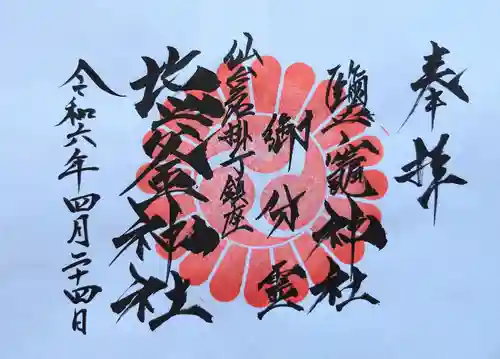 奉拝
鹽竈神社
御分霊
仙台屋掛丁鎮座
地釜神社
令和六年四月二十四日